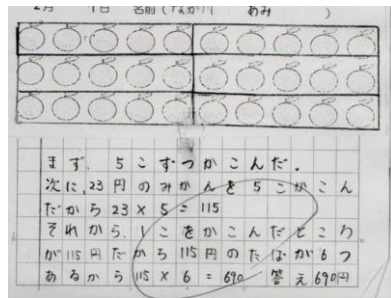 2月 1日 名前(なか川 あみ )
まず、5こずつかこんだ。
次に、23円のみかんを5こかこん
だから23×5=115
それから、1こをかこんだところ
が115円だから115円のたばが6つ
あるから115×6=690 答え690円